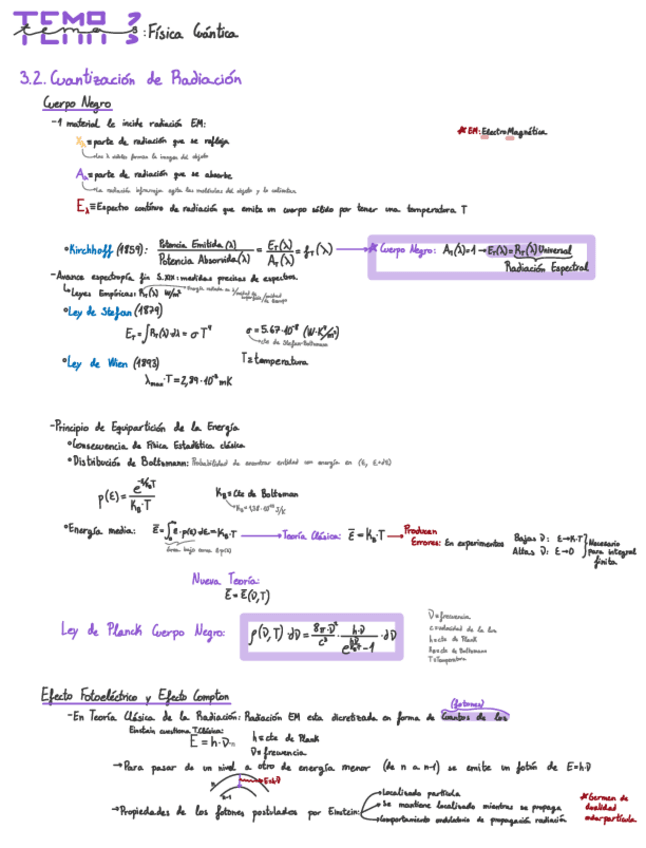 TEMA 3
tema 3: Física Cuántica
3.2. Cuantización de Radiación
Cuerpo Negro
-1 material le incide radiación EM:
* EM: ElectroMagnética
= parte de radiación que se refleja
los λ visible forman la imagen del objeto
Aλ = parte de radiación que se absorbe
La radiación infrarroja agita las moléculas del objeto y lo calientan
Eλ = Espectro contínuo de radiación que emite un cuerpo sólido por tener una temperatura T
• Kirchhoff (1859): Potencia Emitida (λ) / Potencia Absorvida (λ) = E_T(λ) / A_T(λ) = f_T(λ) → * Cuerpo Negro: A_T(λ)=1 → E_T(λ)=R_T(λ) Universal
Radiación Espectral
-Avance espectropía fin S.XIX: medidas precisas de espectros.
Leyes Empíricas: R_T(λ) W/m²
• Ley de Stefan (1879)
E_T = ∫R_T(λ) dλ = σT⁴
σ = 5.67·10⁻⁸ (W·K⁴/m²)
cte de Stefan-Boltzmann
• Ley de Wien (1893)
T = temperatura
λmax · T = 2,89·10⁻³ mK
-Principio de Equipartición de la Energía
• Consecuencia de Física Estadística clásica
• Distribución de Boltzmann: Probabilidad de encontrar entidad con energía en (E, E+dE)
p(E) = e^(-E/K_B T) / K_B·T
K_B = Cte de Boltzman
• Energía media: Ē = ∫ E·p(E) dE = K_B·T → Teoría Clásica: Ē = K_B·T → Producen Errores: En experimentos
Bajas ν: E→K·T
Altas ν: E→0
Necesario para integral finita
Nueva Teoría:
Ē = Ē(ν,T)
Ley de Planck Cuerpo Negro: ρ(ν,T) dν = 8π·ν²/c³ · h·ν/(e^(hν/K_B T) -1) · dν
ν = frecuencia
c = velocidad de la luz
h = cte de Plank
K_B = cte de Boltzmann
T = Temperatura
Efecto Fotoeléctrico y Efecto Compton
(fotones)
-En Teoría Clásica de la Radiación: Radiación EM esta discretizada en forma de Cuantos de luz
Einstein cuestiona T.Clásica:
E = h·ν
h = cte de Plank
ν = frecuencia
→ Para pasar de un nivel a otro de energía menor (de n a n-1) se emite un fotón de E=h·ν
n
n-1
E=h·ν
→ Propiedades de los fotones postulados por Einstein:
→ Localizado partícula
→ Se mantiene localizado mientras se propaga
→ Comportamiento ondulatorio de propagación radiación
* Germen de dualidad onda-partícula